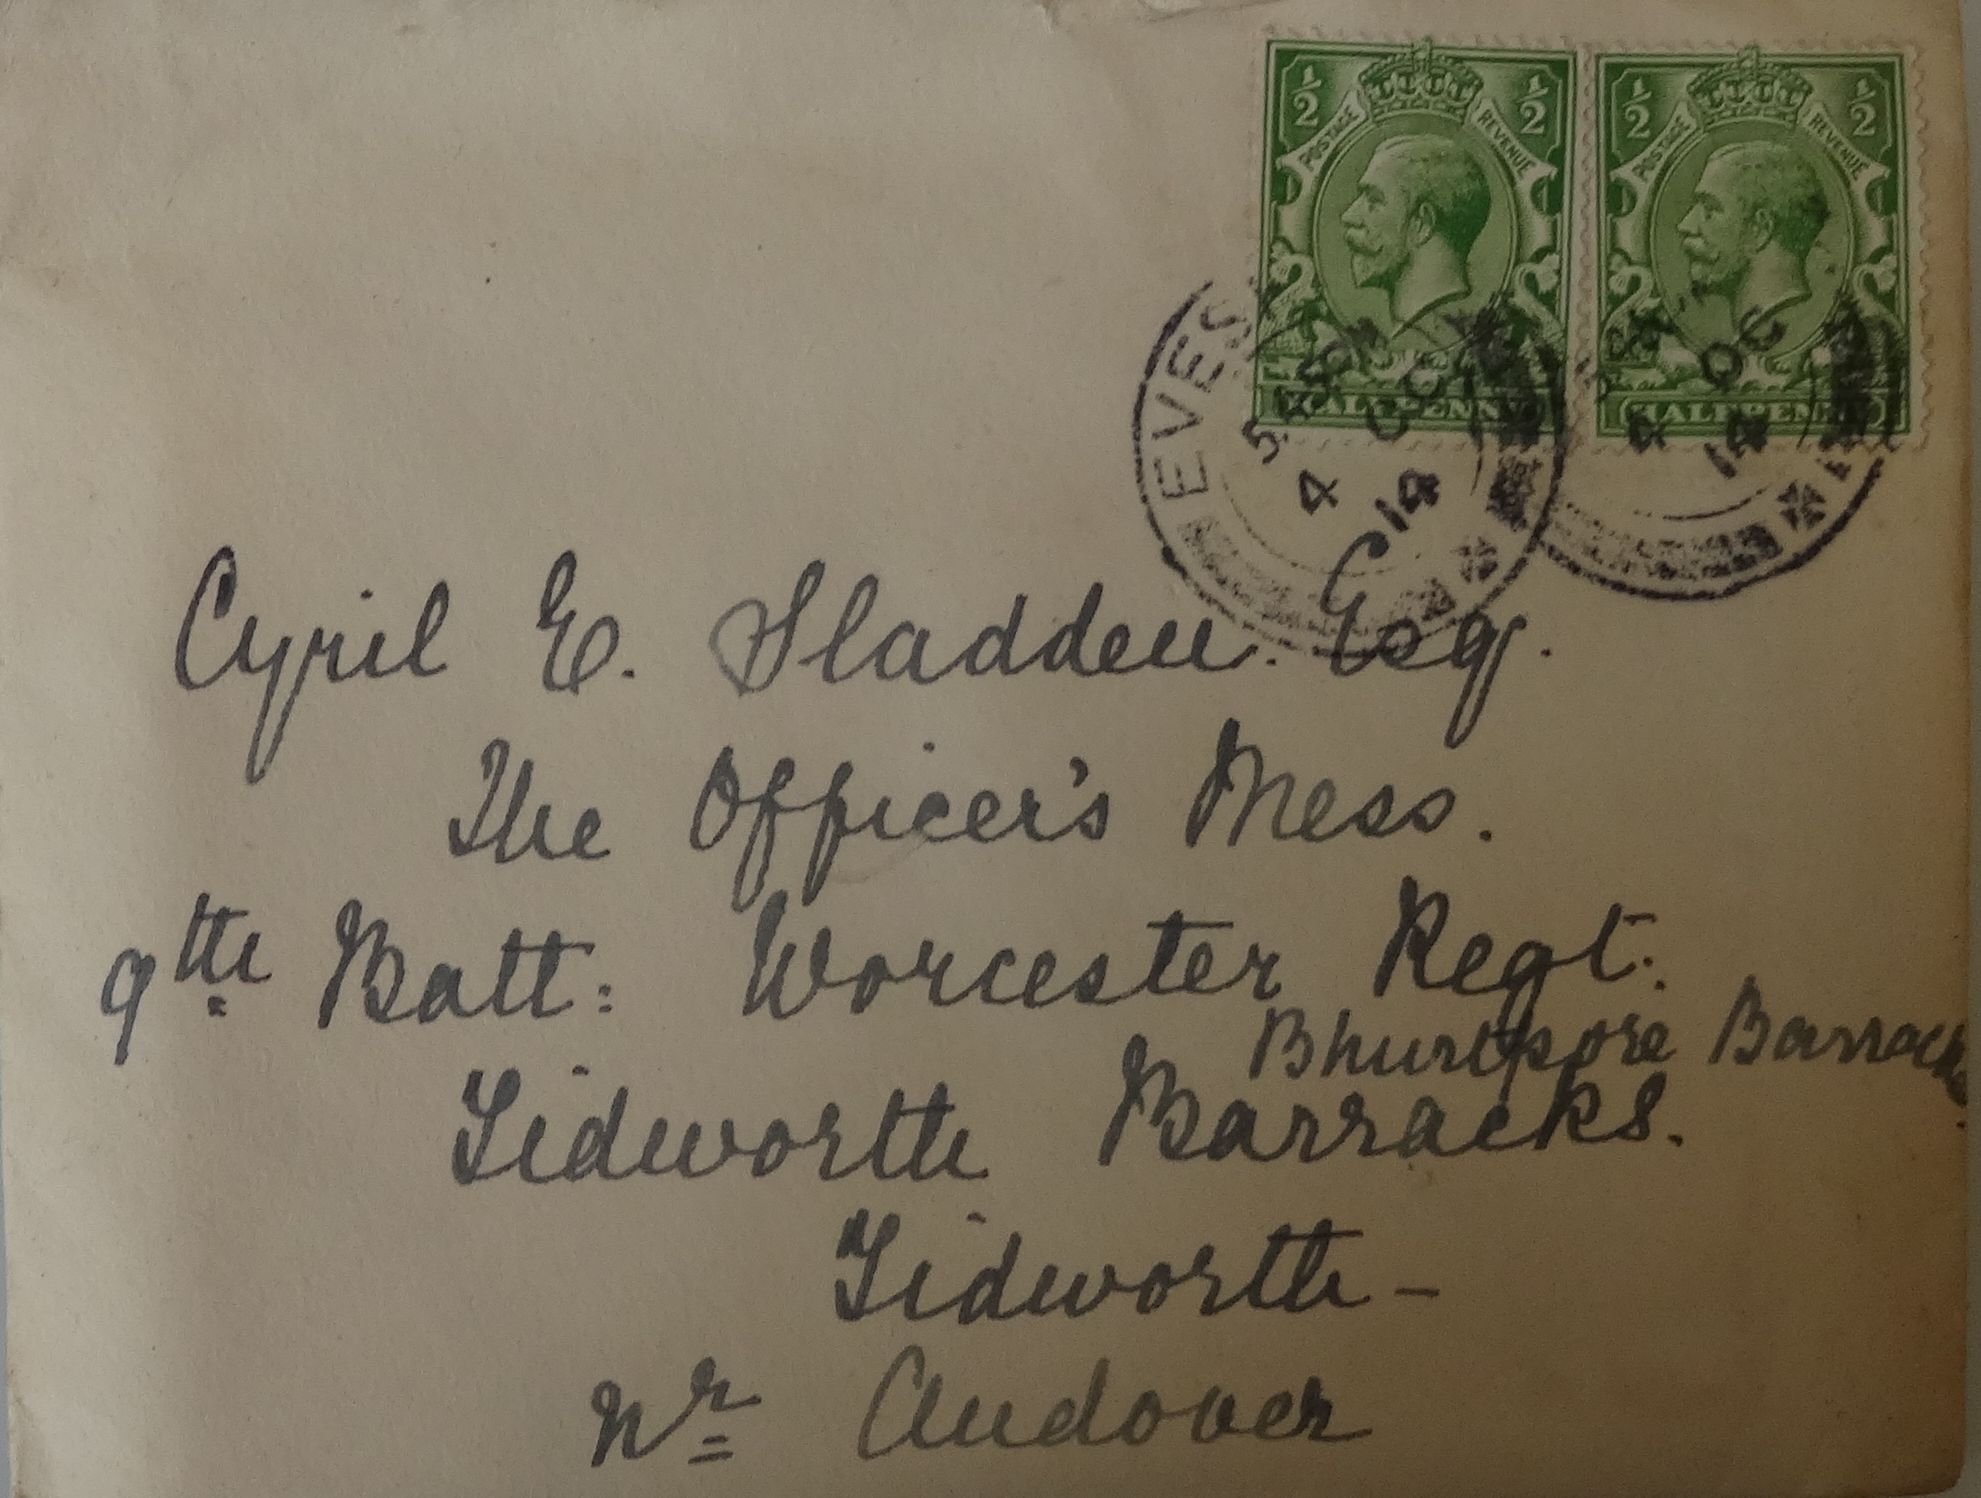 1/2 POSTAGE REVENUE 1/2
HALFPENNY
1/2 POSTAGE REVENUE 1/2
HALFPENNY
EVES
4 OC
14
4 OC
14
Cyril E. Sladden. Esq.
The Officer's Mess.
9th Batt: Worcester Regt.
Bhurtpore Barracks.
Tidworth Barracks.
Tidworth -
Nr Andover